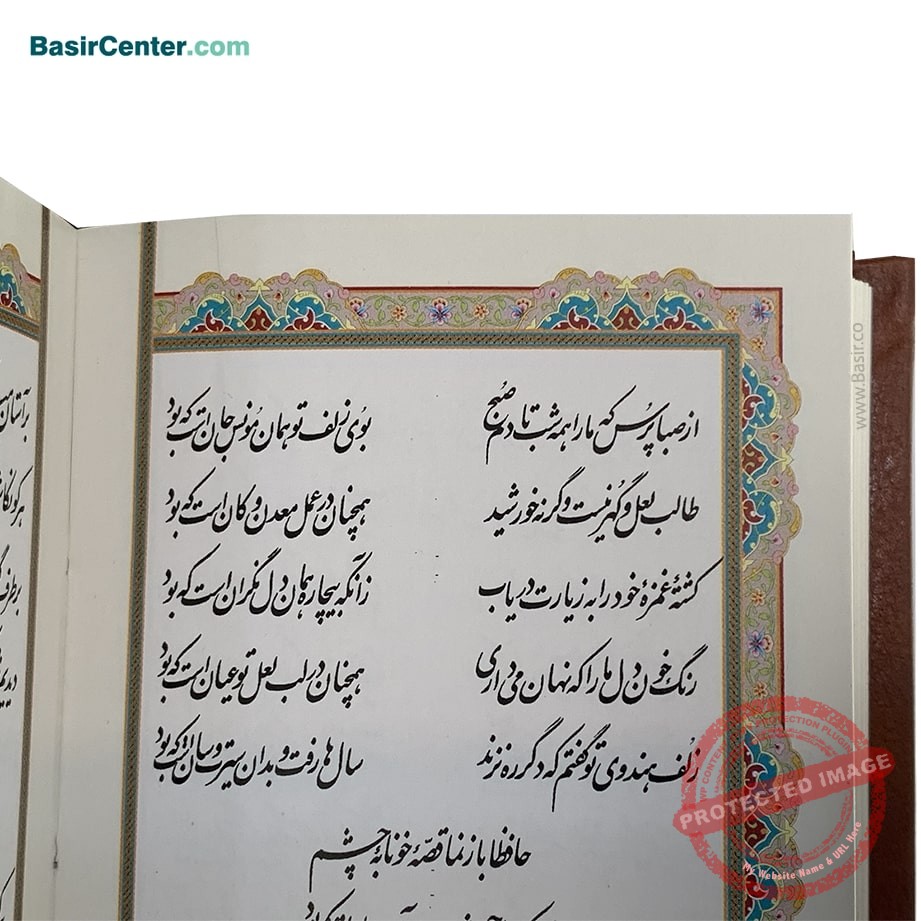 BasirCenter.com
از صبا پرس که ما را همه شب تا دم صبح
بوی زلف تو همان مونس جان است که بود
طالب لعل و گهر نیست وگرنه خورشید
همچنان در عمل معدن و کان است که بود
کشتهٔ غمزهٔ خود را به زیارت دریاب
زانکه بیچاره همان دل نگران است که بود
رنگ خون دل ما را که نهان می داری
همچنان در لب لعل تو عیان است که بود
زلف هندوی تو گفتم که دگر ره نزند
سال ها رفت و بدان سیرت و سان است که بود
حافظا باز نما قصهٔ خونابهٔ چشم
www.Basir.co
PROTECTED IMAGE
My Website Name & URL Here
بر آستان
هر کو
دیدیم